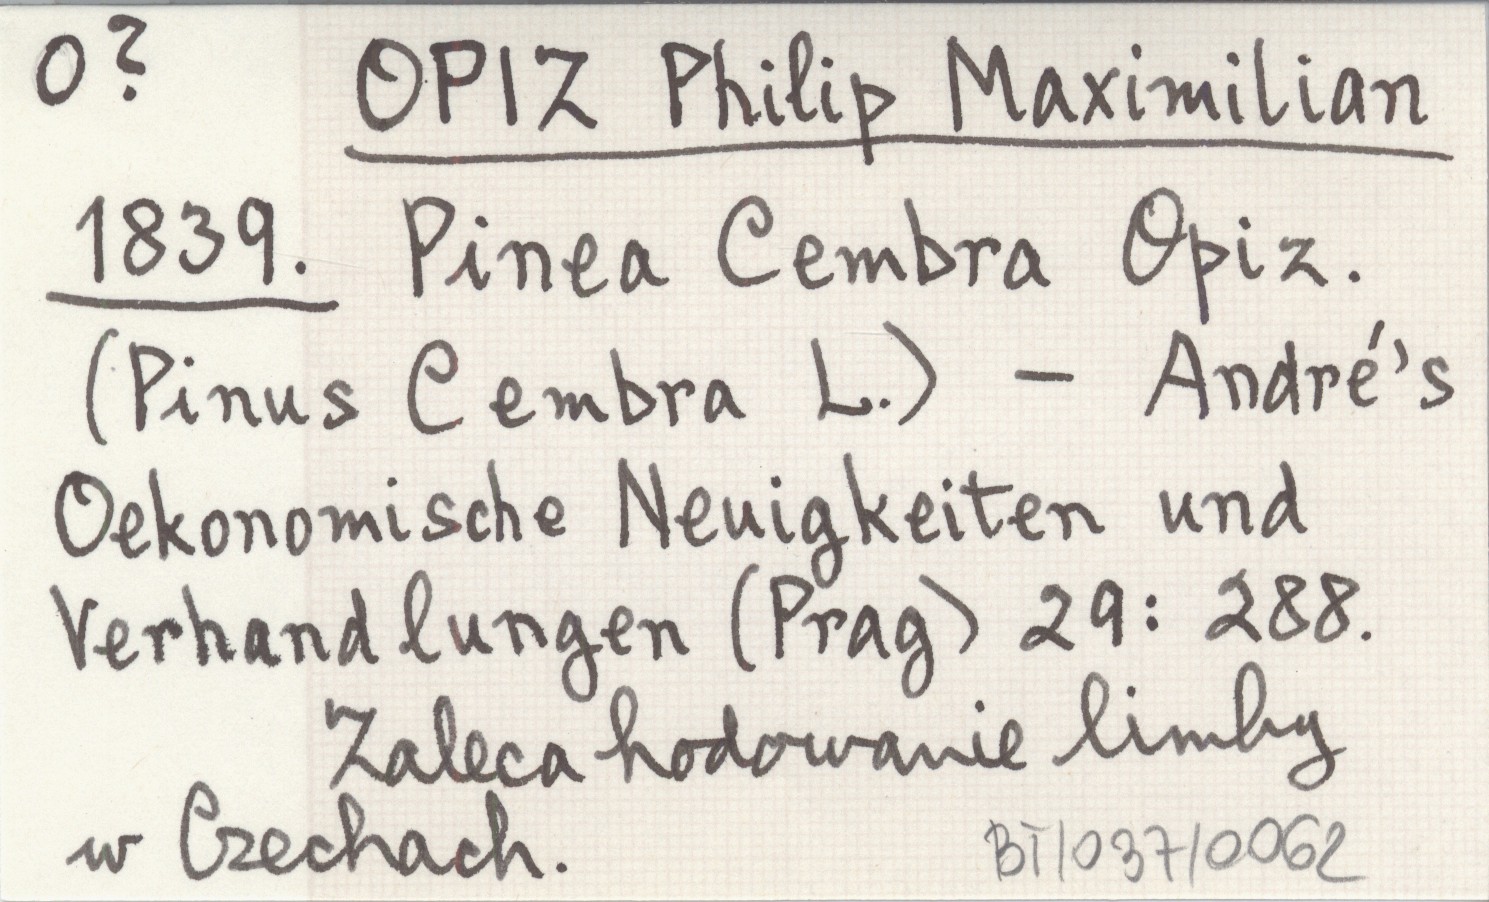 O? OPIZ Philip Maximilian
1839. Pinea Cembra Opiz.
(Pinus Cembra L.) – André's
Oekonomische Neuigkeiten und
Verhandlungen (Prag) 29: 288.
Zaleca hodowanie limby
w Czechach.
BT/037/0062